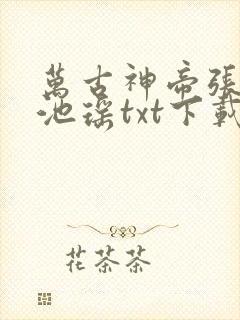 萬古神帝張
池瑤txt下載
花茶茶